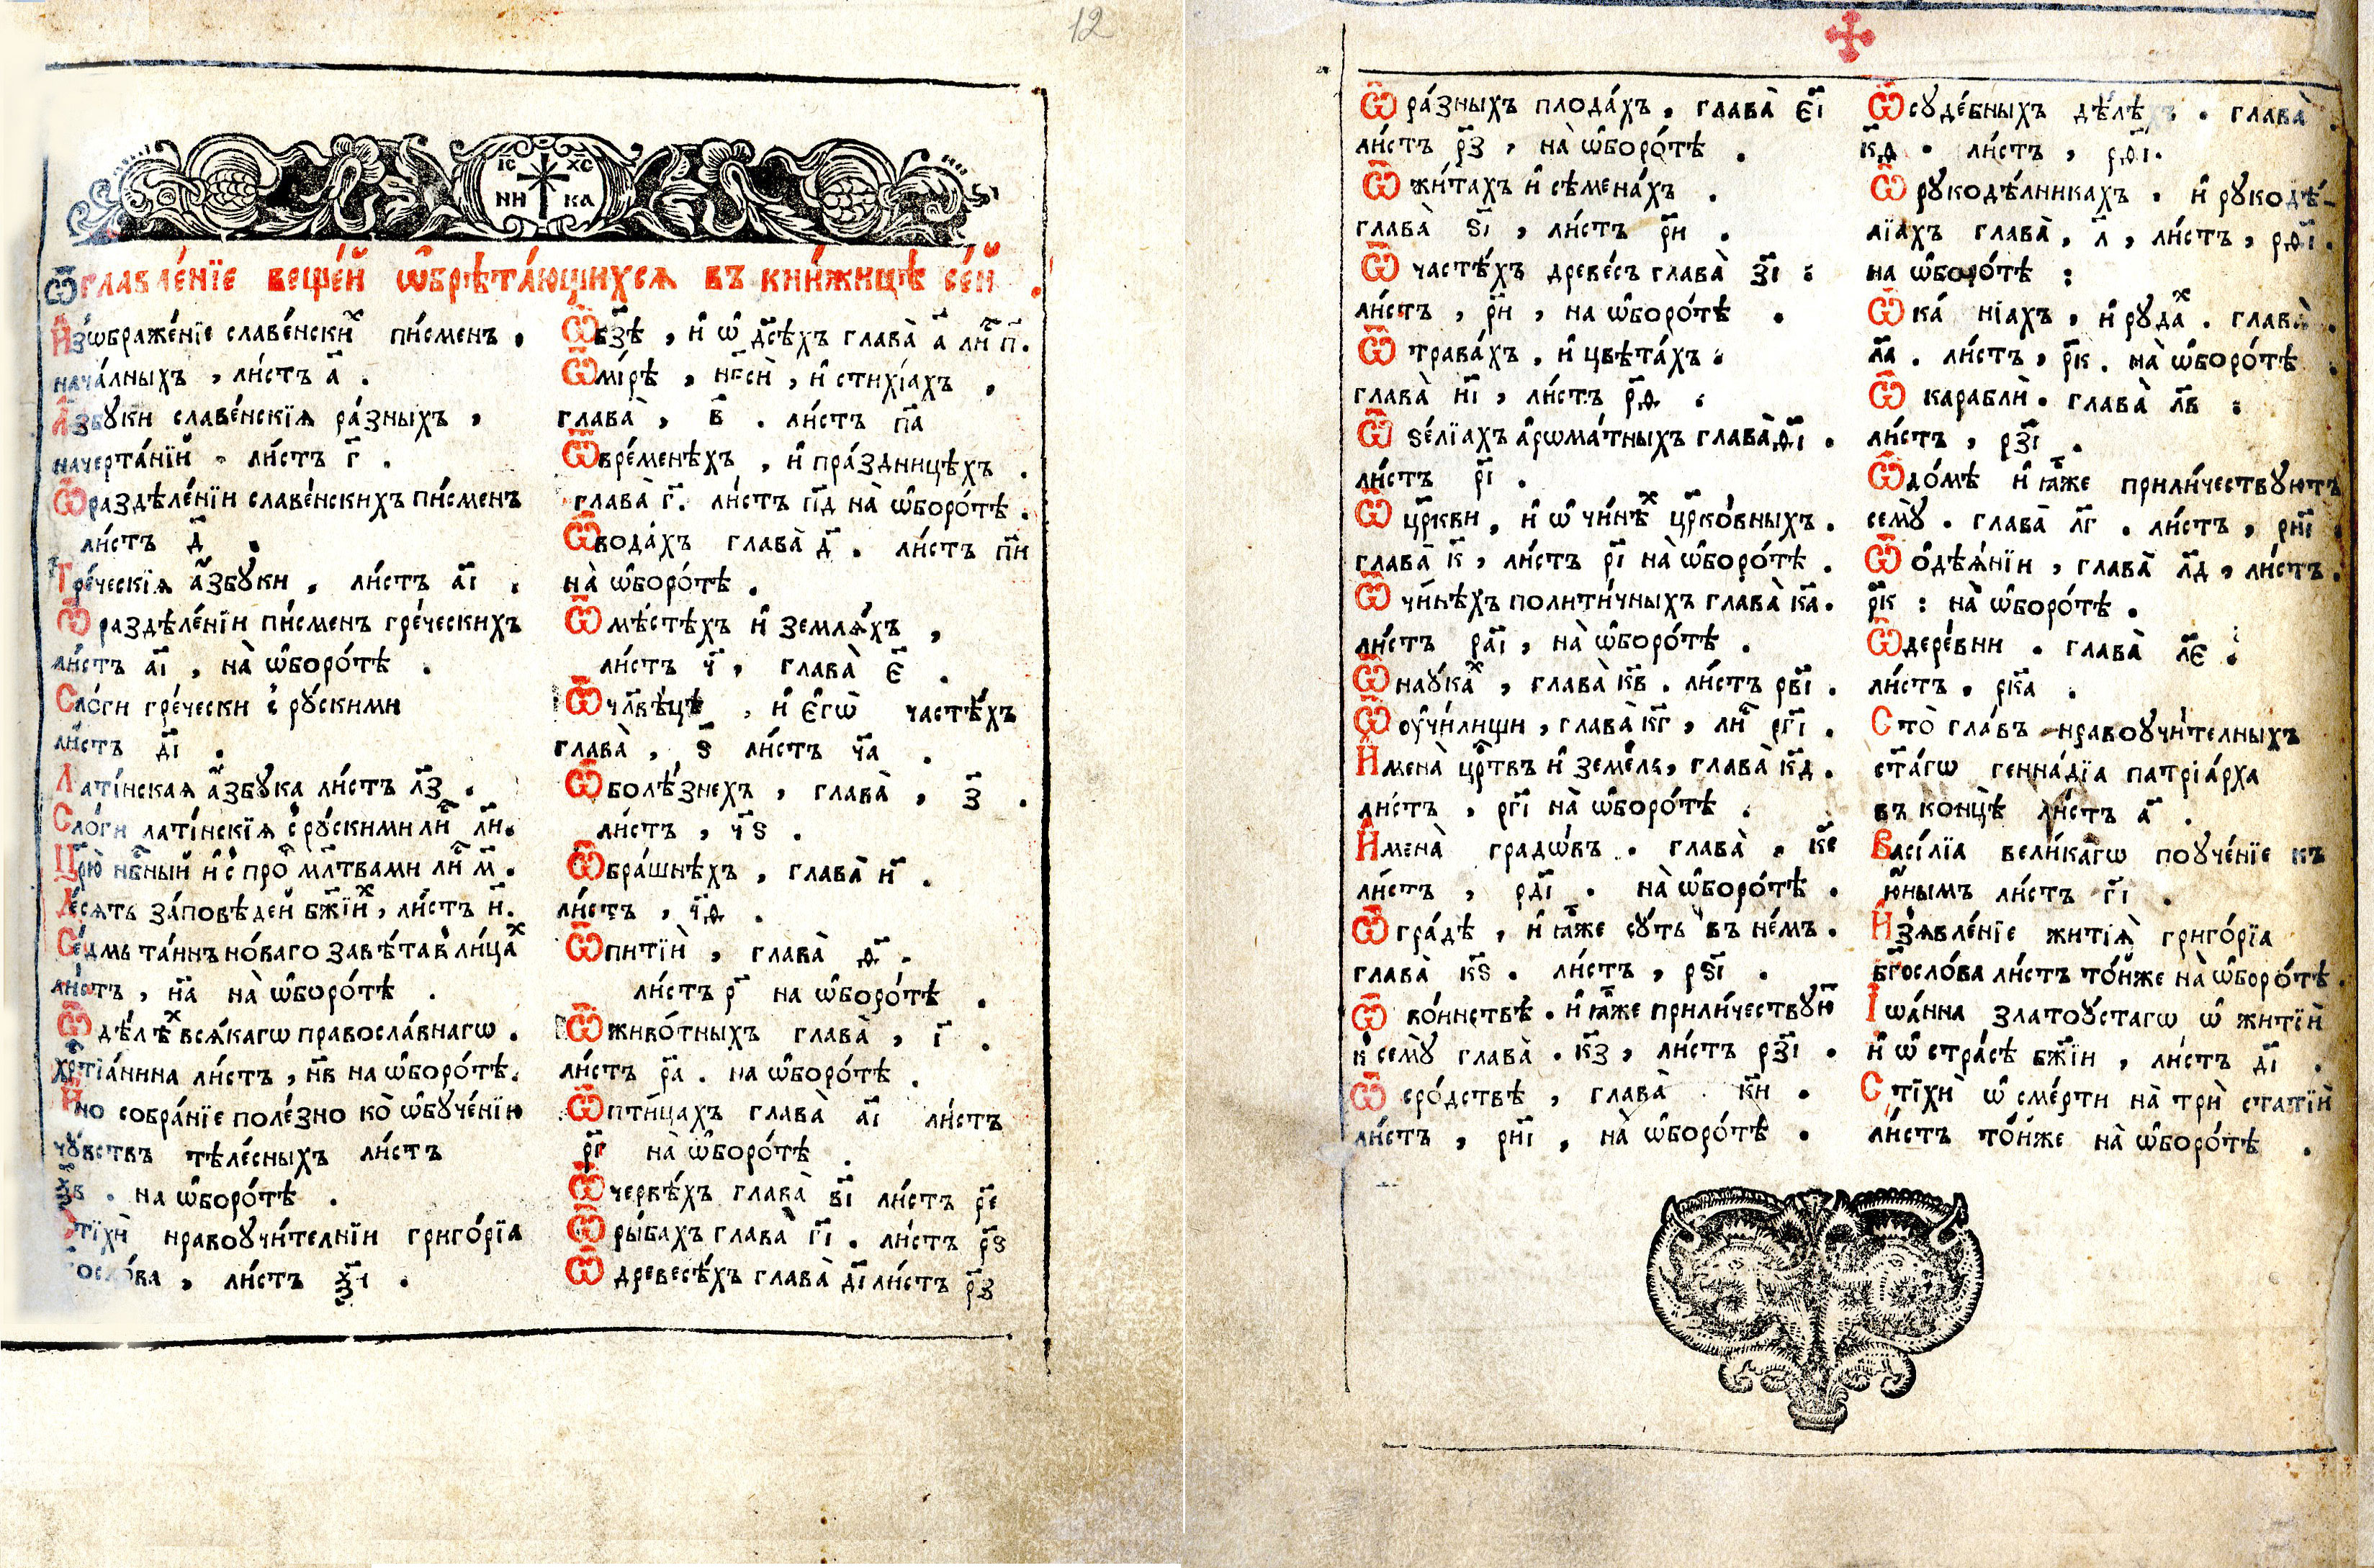 12
ІС ХС
НИ КА
Ѡ҆главле́нїе веще́й ѡ҆брѣта́ющихсѧ въ кни́жицѣ се́й .
И҆зѡбраже́нїе славе́нскиⷯ пи́сменъ ,
нача́лныхъ , ли́стъ а҃ .
А҆збуки славе́нскїѧ ра́зныхъ ,
начерта́нїй . ли́стъ г҃ .
Ѡ҆ раздѣле́нїи славе́нскихъ пи́сменъ
ли́стъ д҃ .
Гре́ческїѧ а҆́збꙋки , ли́стъ а҃і .
Ѡ҆ раздѣле́нїи пи́сменъ гре́ческихъ
ли́стъ а҃і , на̀ ѡ҆боро́тѣ .
Сло́ги гре́чески с̾ рꙋскими
ли́стъ д҃і .
Лати́нскаѧ а҆́збꙋка ли́стъ л҃з .
Сло́ги лати́нскїѧ с̾ рꙋ́скими лиⷭ҇ л҃и .
Цр҃ю̀ нбⷭ҇ный и҆ с̾ проⷱ҇ мл҃твами лиⷭ҇ м҃ .
Де́сѧть за́повѣдей бж҃їиⷯ , ли́стъ н҃ .
Се́дмь та́инъ но́ваго завѣ́та в̾ ли́цаⷯ
ли́стъ , н҃а на ѡ҆боро́тѣ .
Ѡ҆ дѣ́лѣⷯ всѧ́кагѡ правосла́внагѡ .
хрⷭ҇тїа́нина ли́стъ , н҃в на ѡ҆боро́тѣ .
И҆но собра́нїе поле́зно ко̀ ѡ҆бꙋче́нїю
чꙋ́вствъ тѣле́сныхъ ли́стъ
ѯ҃в . на ѡ҆боро́тѣ .
Стїхѝ нравоꙋчи́телнїи григо́рїа
бг҃осло́ва , ли́стъ ѯ҃и .
Ѡ҆ бз҃ѣ , и҆ ѡ҆ дс҃ѣхъ глава̀ а҃ лиⷭ҇ п҃ .
Ѡ҆ мі́рѣ , нб҃сѝ , и҆ стихі́ахъ ,
глава̀ , в҃ . ли́стъ п҃а
Ѡ҆ вре́менѣхъ , и҆ пра́здницѣхъ .
глава̀ г҃ . ли́стъ п҃д на̀ ѡ҆боро́тѣ .
Ѡ҆ вода́хъ глава̀ д҃ . ли́стъ п҃и
на̀ ѡ҆боро́тѣ .
Ѡ҆ мѣ́стѣхъ и҆ землѧ́хъ ,
ли́стъ ч҃ , глава̀ є҃ .
Ѡ҆ чл҃вѣ́цѣ , и҆ є҆гѡ̀ частѣ́хъ
глава̀ , ѕ҃ ли́стъ ч҃а .
Ѡ҆ болѣ́знехъ , глава̀ , з҃ .
ли́стъ , ч҃ѕ .
Ѡ҆ бра́шнѣхъ , глава̀ и҃ .
ли́стъ , ч҃ѳ .
Ѡ҆ питїѝ , глава̀ ѳ҃ .
ли́стъ р҃ на ѡ҆боро́тѣ .
Ѡ҆ живо́тныхъ глава̀ , і҃ .
ли́стъ р҃а . на ѡ҆боро́тѣ .
Ѡ҆ пти́цахъ глава̀ а҃і ли́стъ
р҃г на̀ ѡ҆боро́тѣ .
Ѡ҆ червѣ́хъ глава̀ в҃і ли́стъ р҃е
Ѡ҆ ры́бахъ глава̀ г҃і . ли́стъ р҃ѕ
Ѡ҆ древесѣ́хъ глава̀ д҃і ли́стъ р҃з
Ѡ҆ ра́зныхъ плода́хъ , глава̀ є҃і
ли́стъ р҃з , на̀ ѡ҆боро́тѣ .
Ѡ҆ жи́тахъ и҆ сѣмена́хъ .
глава̀ ѕ҃і , ли́стъ р҃и .
Ѡ҆ частѣ́хъ древе́съ глава̀ з҃і :
ли́стъ , р҃и , на ѡ҆боро́тѣ .
Ѡ҆ трава́хъ , и҆ цвѣта́хъ :
глава̀ и҃і , ли́стъ р҃ѳ :
Ѡ҆ ѕе́лїахъ а҆рѡма́тныхъ глава̀ ѳ҃і .
ли́стъ р҃і .
Ѡ҆ цр҃кви , и҆ ѡ҆ чи́нѣⷯ цр҃ко́вныхъ .
глава̀ к҃ , ли́стъ р҃і на ѡ҆боро́тѣ .
Ѡ҆ чи́нѣхъ полити́чныхъ глава̀ к҃а .
ли́стъ ра҃і , на̀ ѡ҆боро́тѣ .
Ѡ҆ наꙋ́каⷯ , глава̀ к҃в . ли́стъ рв҃і .
Ѡ҆ оу҆чи́лищи , глава̀ к҃г , лиⷭ҇ рг҃і .
И҆мена̀ црⷭ҇твъ и҆ земе́ль , глава̀ к҃д .
ли́стъ , рг҃і на̀ ѡ҆боро́тѣ .
И҆мена̀ градѡ́въ . глава̀ . к҃е
ли́стъ , рд҃і . на̀ ѡ҆боро́тѣ .
Ѡ҆ гра́дѣ , и҆ ꙗ҆̀же сꙋ́ть въ не́мъ .
глава̀ к҃ѕ . ли́стъ , рѕ҃і .
Ѡ҆ во́инствѣ . и҆ ꙗ҆̀же прили́чествꙋюⷮ
к̾ семꙋ̀ глава̀ . к҃з , ли́стъ рз҃і .
Ѡ҆ сро́дствѣ , глава̀ к҃и .
ли́стъ , ри҃і , на̀ ѡ҆боро́тѣ .
Ѡ҆ сꙋде́бныхъ дѣ́лѣ . глава̀ .
ли́стъ , рѳ҃і .
Ѡ҆ рꙋкодѣ́лникахъ . и҆ рꙋкодѣ́-
лїахъ глава̀ , л҃ , ли́стъ , рѳ҃і .
на ѡ҆боро́тѣ :
Ѡ҆ ка́ нїахъ , и҆ рꙋ́даⷯ . глава̀ .
л҃а . ли́стъ , р҃к . на̀ ѡ҆боро́тѣ .
Ѡ҆ караблѝ . глава̀ л҃в :
ли́стъ , рз҃і .
Ѡ҆ до́мѣ и҆ ꙗ҆̀же прили́чествꙋютъ
семꙋ̀ . глава̀ л҃г . ли́стъ , ри҃і .
Ѡ҆ ѻ҆дѣѧ́нїи , глава̀ л҃д , ли́стъ .
р҃к : на̀ ѡ҆боро́тѣ .
Ѡ҆ дере́вни . глава̀ л҃є :
ли́стъ . рк҃а .
Сто̀ гла́въ нравоꙋчи́телныхъ
ст҃а́гѡ генна́дїа патрїа́рха
въ концѣ̀ ли́стъ а҃ .
Васі́лїа вели́кагѡ поꙋче́нїе къ
ю҆́нымъ ли́стъ г҃і .
И҆зѧвле́нїе житїѧ̀ григо́рїа
бг҃осло́ва ли́стъ то́йже на̀ ѡ҆боро́тѣ .
І҆ѡа́нна златоꙋ́стагѡ ѡ҆ житїѝ
и҆ ѡ҆ стра́сѣ бж҃їи , ли́стъ д҃і .
Стїхѝ ѡ҆ сме́рти на̀ трѝ статїѝ
ли́стъ то́йже на̀ ѡ҆боро́тѣ .